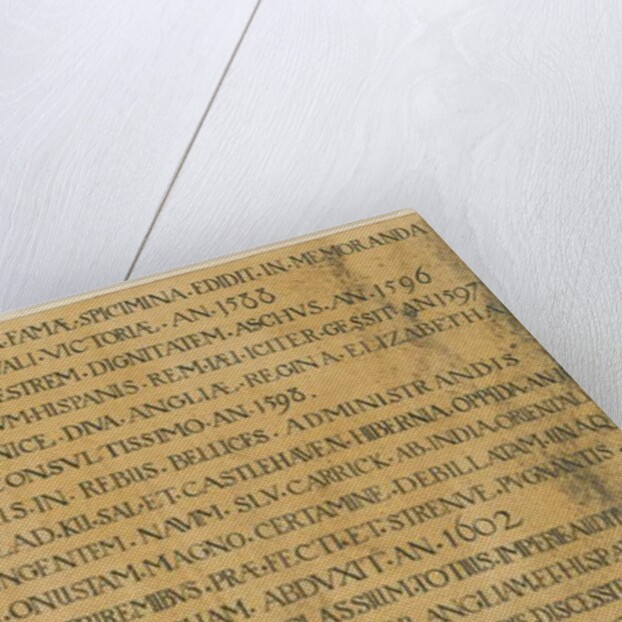 FAMÆ·SPICIMINA·EDIDIT·IN·MEMORANDA
VALI·VICTORIÆ·AN·1588
ESTREM·DIGNITATEM·ASCHVS·AN·1596
VM·HISPANIS·REM·IÆI·ICITER·GESSIT·AN·1597
NICE·DIVA·ANGLIÆ·REGINA·ELIZABETHA
CONSVLTISSIMO·AN·1598·
IS·IN·REBUS·BELLICES·ADMINISTRANDIS
LAD·KII·SAL·ET·CASTLEHAVEN·HIBERNIA·OPPIDA·AN
NGENTEM·NAVIM·SLV·CARRICK·AB·INDIA·ORIENTAL
·ONUSTAM·MAGNO·CERTAMINE·DEBILLATAM·IINAC
RIREMIBVS·PRÆ·FECTI·ET·STRENVE·PVGNANTIS·
IAM·ABDVXIT·AN·1602
LASSIUM·TOTIUS·IMPERII
ANGLIAM·ET·HISP
DISCESSI